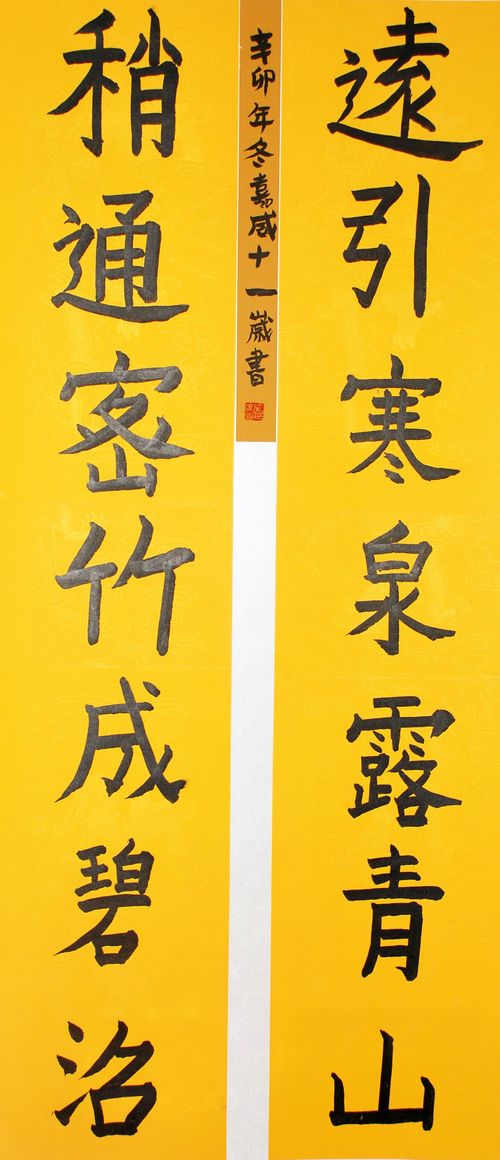 遠引寒泉露青山
稍通密竹成碧沼
辛卯年冬嘉咸十一歲書